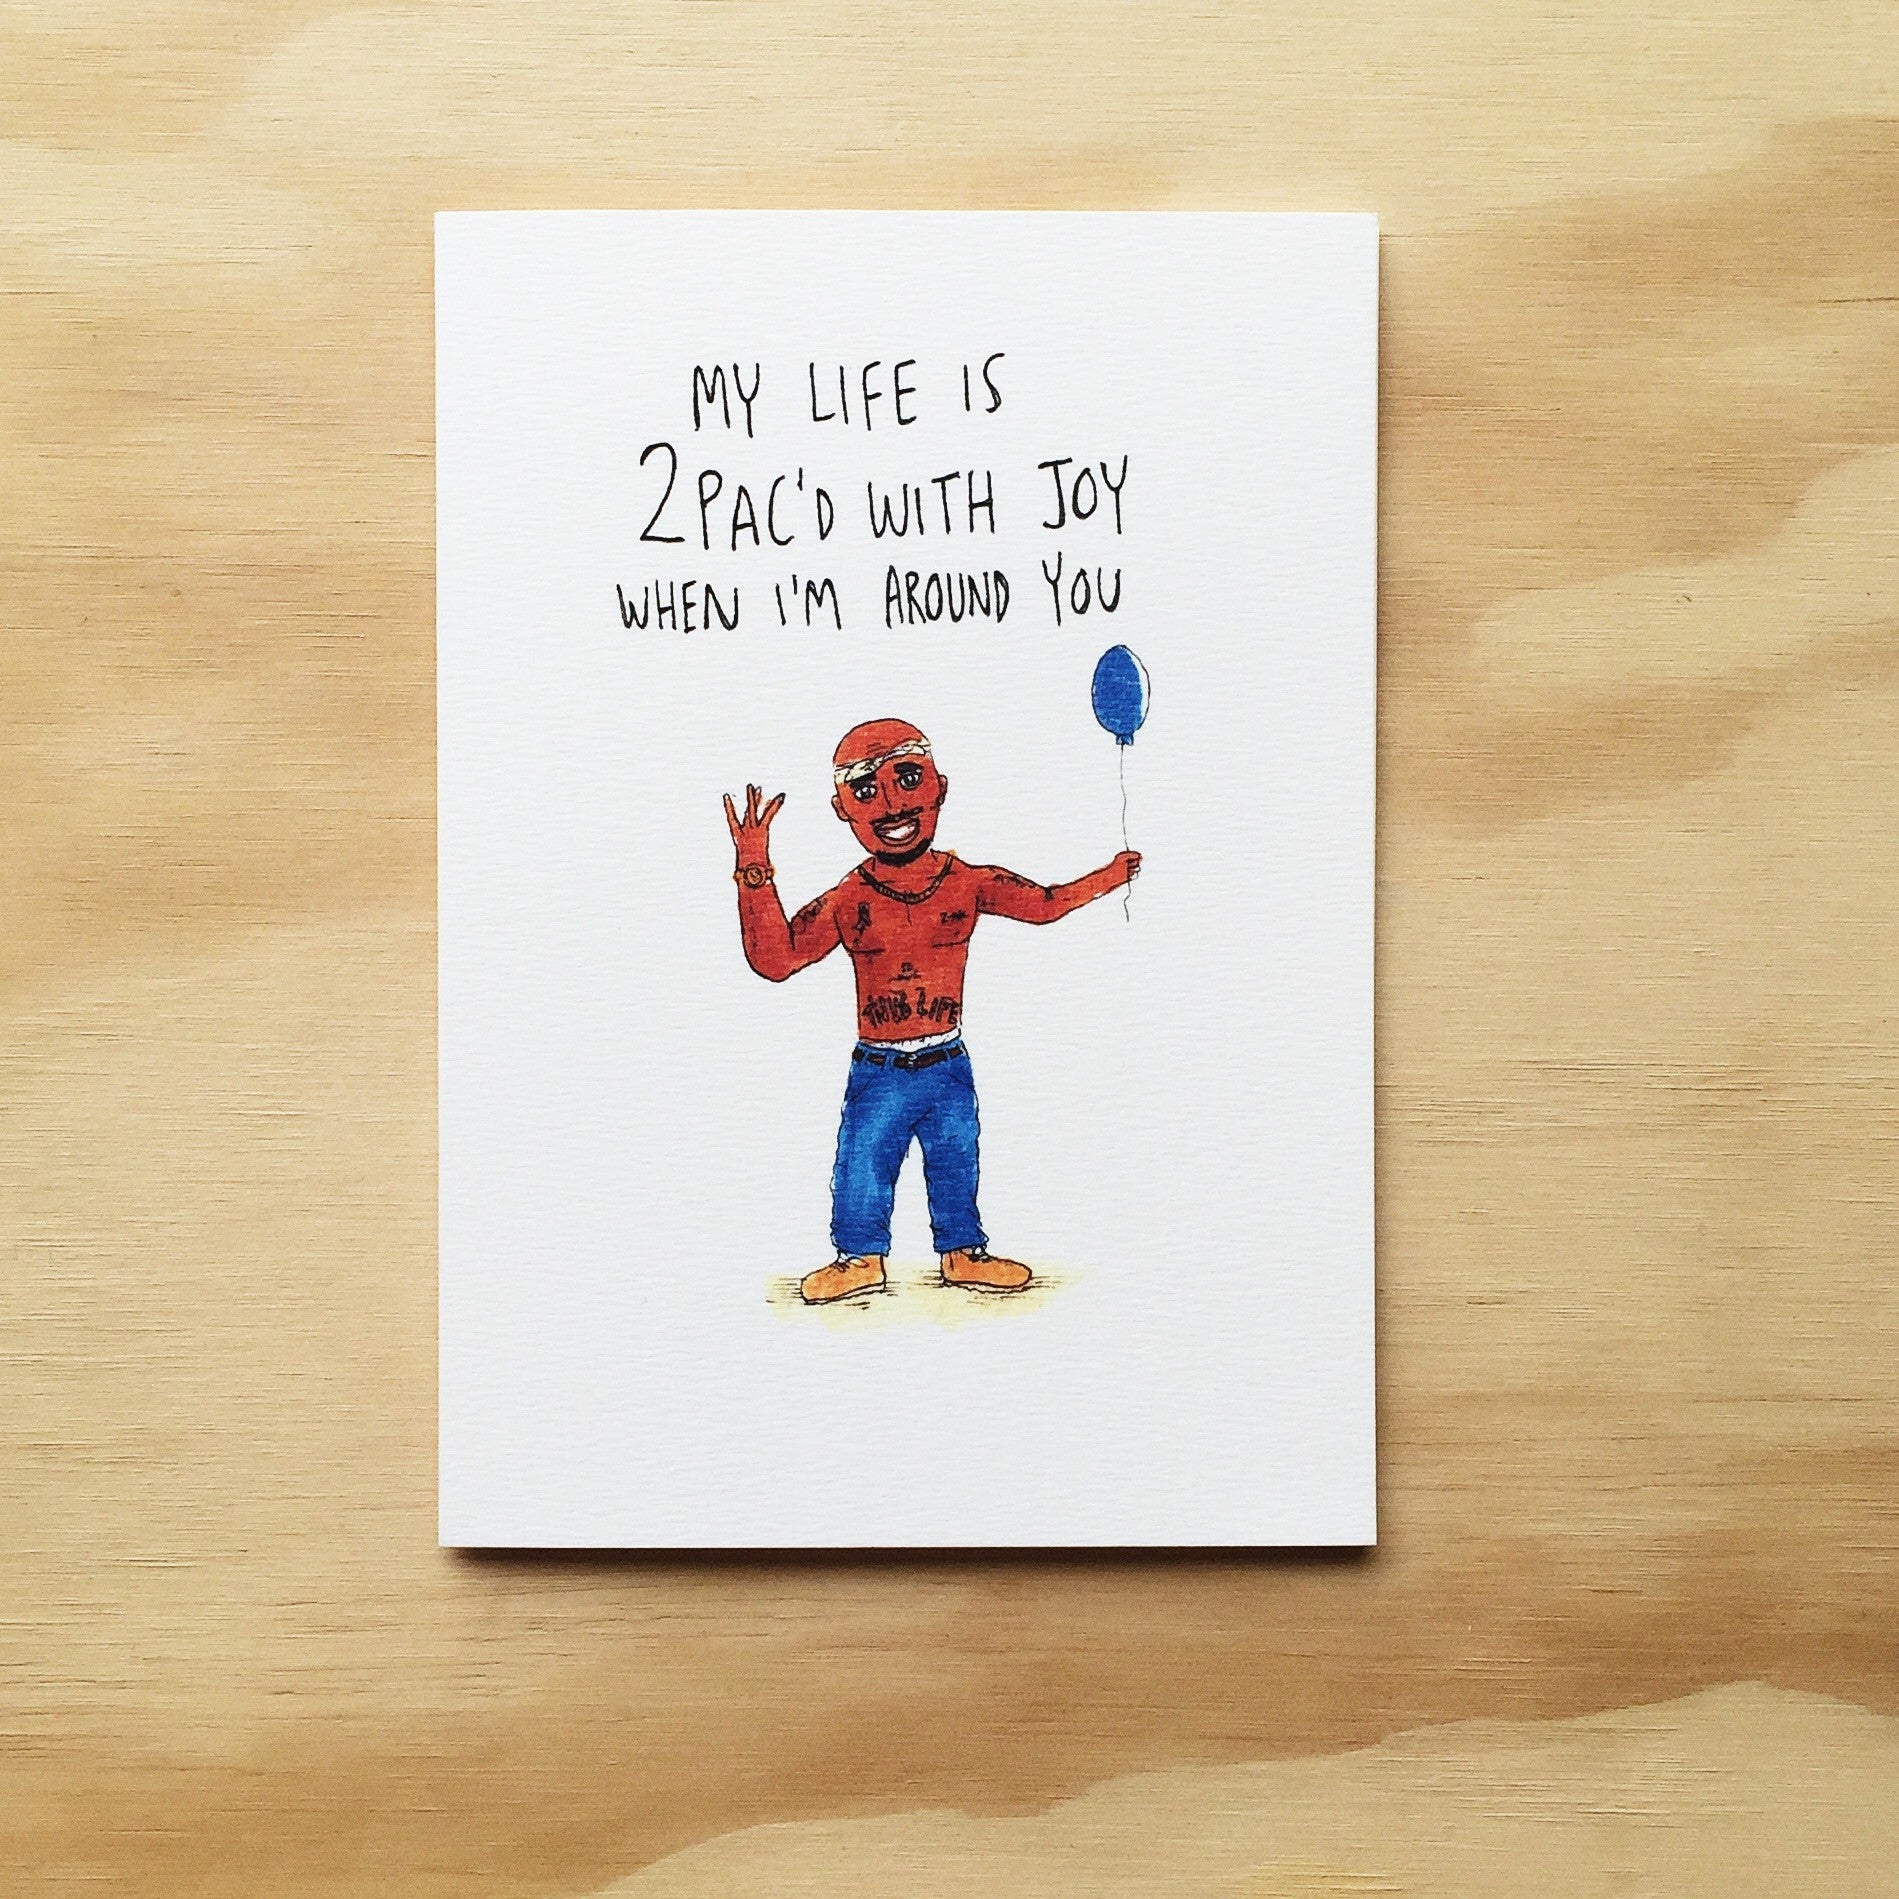 MY LIFE IS
2PAC'D WITH JOY
WHEN I'M AROUND YOU
THUG LIFE